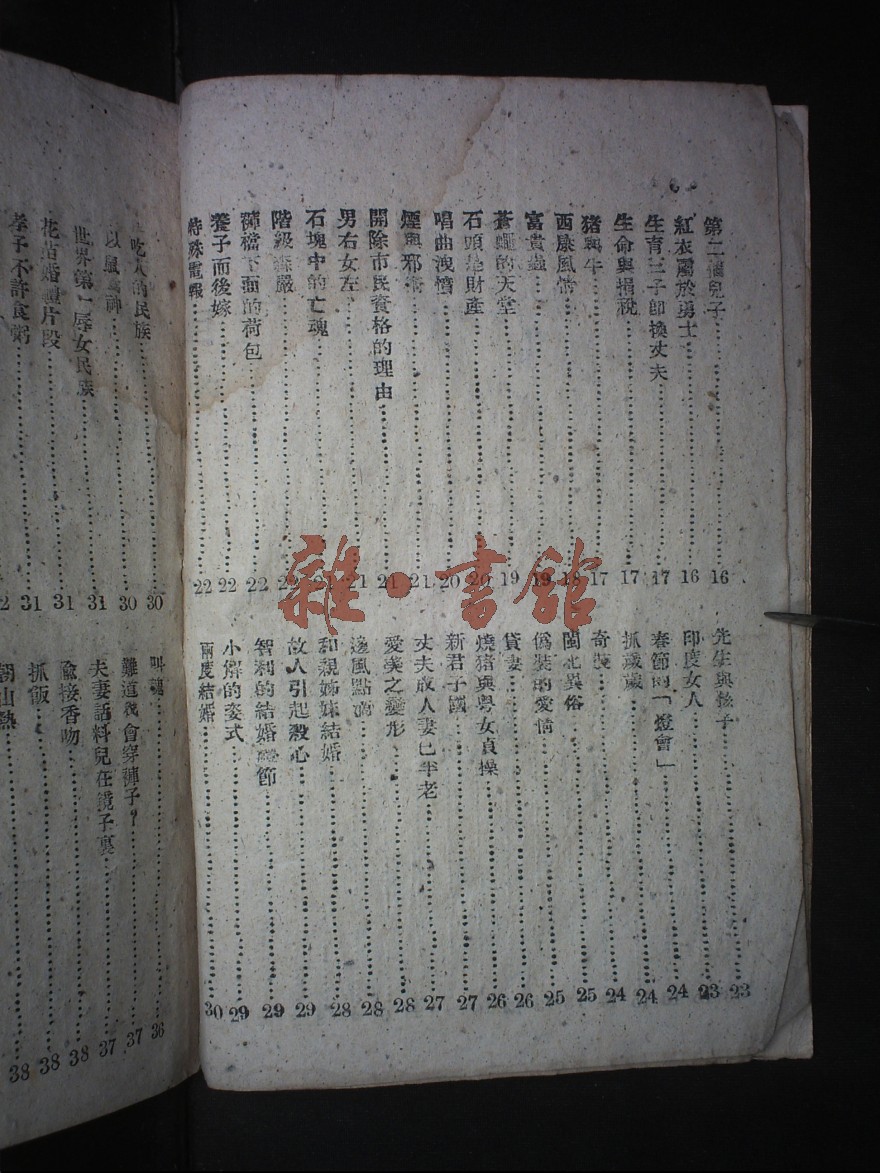 第二個兒子……16
紅衣屬於勇士……16
生育三子即換丈夫……17
生命與捐稅……17
猪與牛……17
西康風情……18
富貴蟲……19
蒼蠅的天堂……19
石頭是財產……20
唱曲洩憤……20
煙與邪術……21
開除市民資格的理由……21
男右女左……21
石塊中的亡魂……21
階級森嚴……22
褲襠下面的荷包……22
養子而後嫁……22
特殊電報……22
先生與孩子……23
印度女人……23
春節的「燈會」……24
抓歲歲……24
奇裝……24
閩北異俗……25
偽裝的愛情……25
貸妻……26
燒猪與粵女貞操……26
新君子國……27
丈夫成人妻已半老……27
愛美之變形……28
邊風點滴……28
和親姊妹結婚……28
故人引起殺心……29
智利的結婚節……29
小解的姿式……29
兩度結婚……30
吃人的民族……30
以風為神……30
世界第一辱女民族……31
花苗婚禮片段……31
孝子不許食粥……31
2
叫魂……36
難道我會穿褲子?……37
夫妻話料兒在鏡子裏……37
險接香吻……38
抓飯……38
朝山熱……38
雜·書館